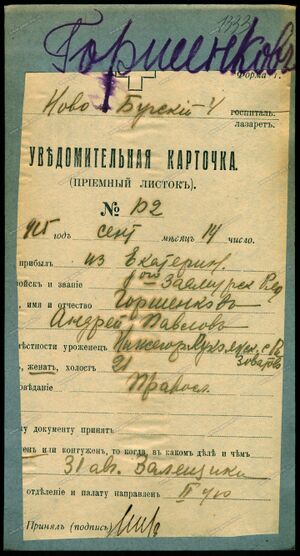 1333
Горшенковъ
Форма 1.
Ново Бугскій госпиталь.
лазаретъ.
УВѢДОМИТЕЛЬНАЯ КАРТОЧКА.
(ПРІЕМНЫЙ ЛИСТОКЪ).
№ 102
915 годъ сент мѣсяцъ 14 число.
прибылъ из Екатерин.
ойскъ и званіе Заамурск Ряд
, имя и отчество Горшенковъ
Андрей Павловъ
ѣстности уроженецъ Нижегор
, женатъ, холостъ 21
овѣданіе Правосл
у документу принятъ
енъ или контуженъ, то когда, въ какомъ дѣлѣ и чѣмъ
31 авг. Залещики
отдѣленіе и палату направленъ II
Принялъ (подпись)